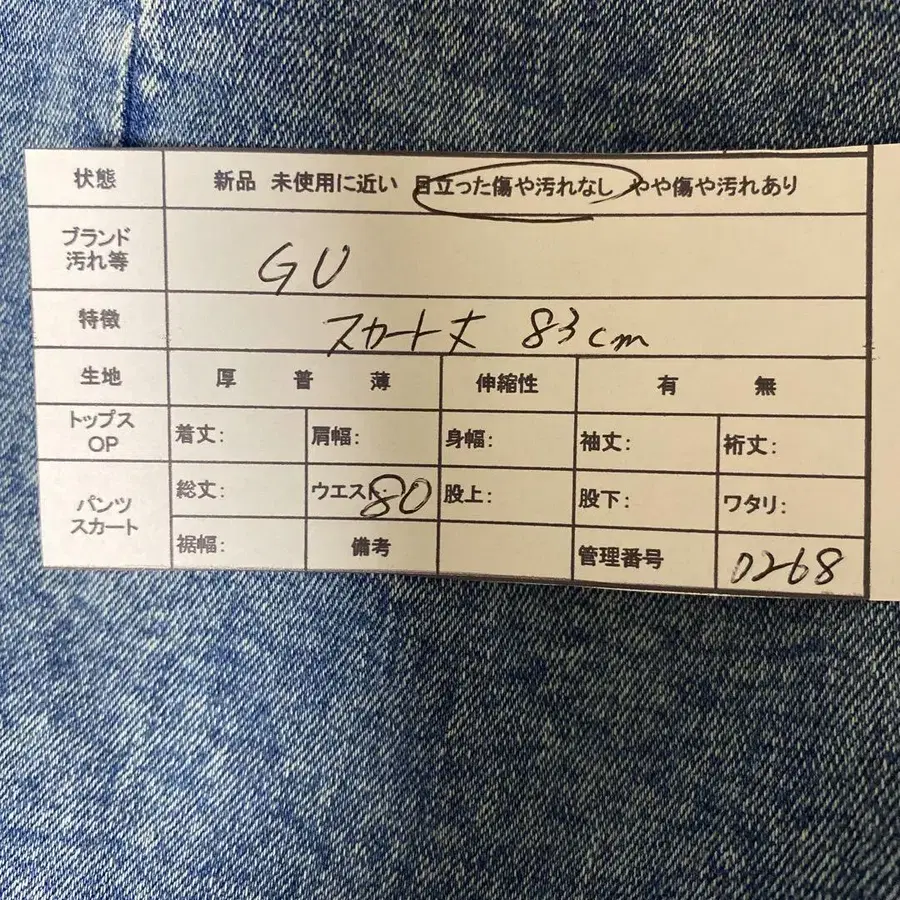 状態 新品 未使用に近い 目立った傷や汚れなし やや傷や汚れあり
ブランド
汚れ等
GU
特徴 スカート丈 83cm
生地 厚 普 薄 伸縮性 有 無
トップス
OP
着丈: 肩幅: 身幅: 袖丈: 裄丈:
パンツ
スカート
総丈: ウエスト: 80 股上: 股下: ワタリ:
裾幅: 備考 管理番号 0268